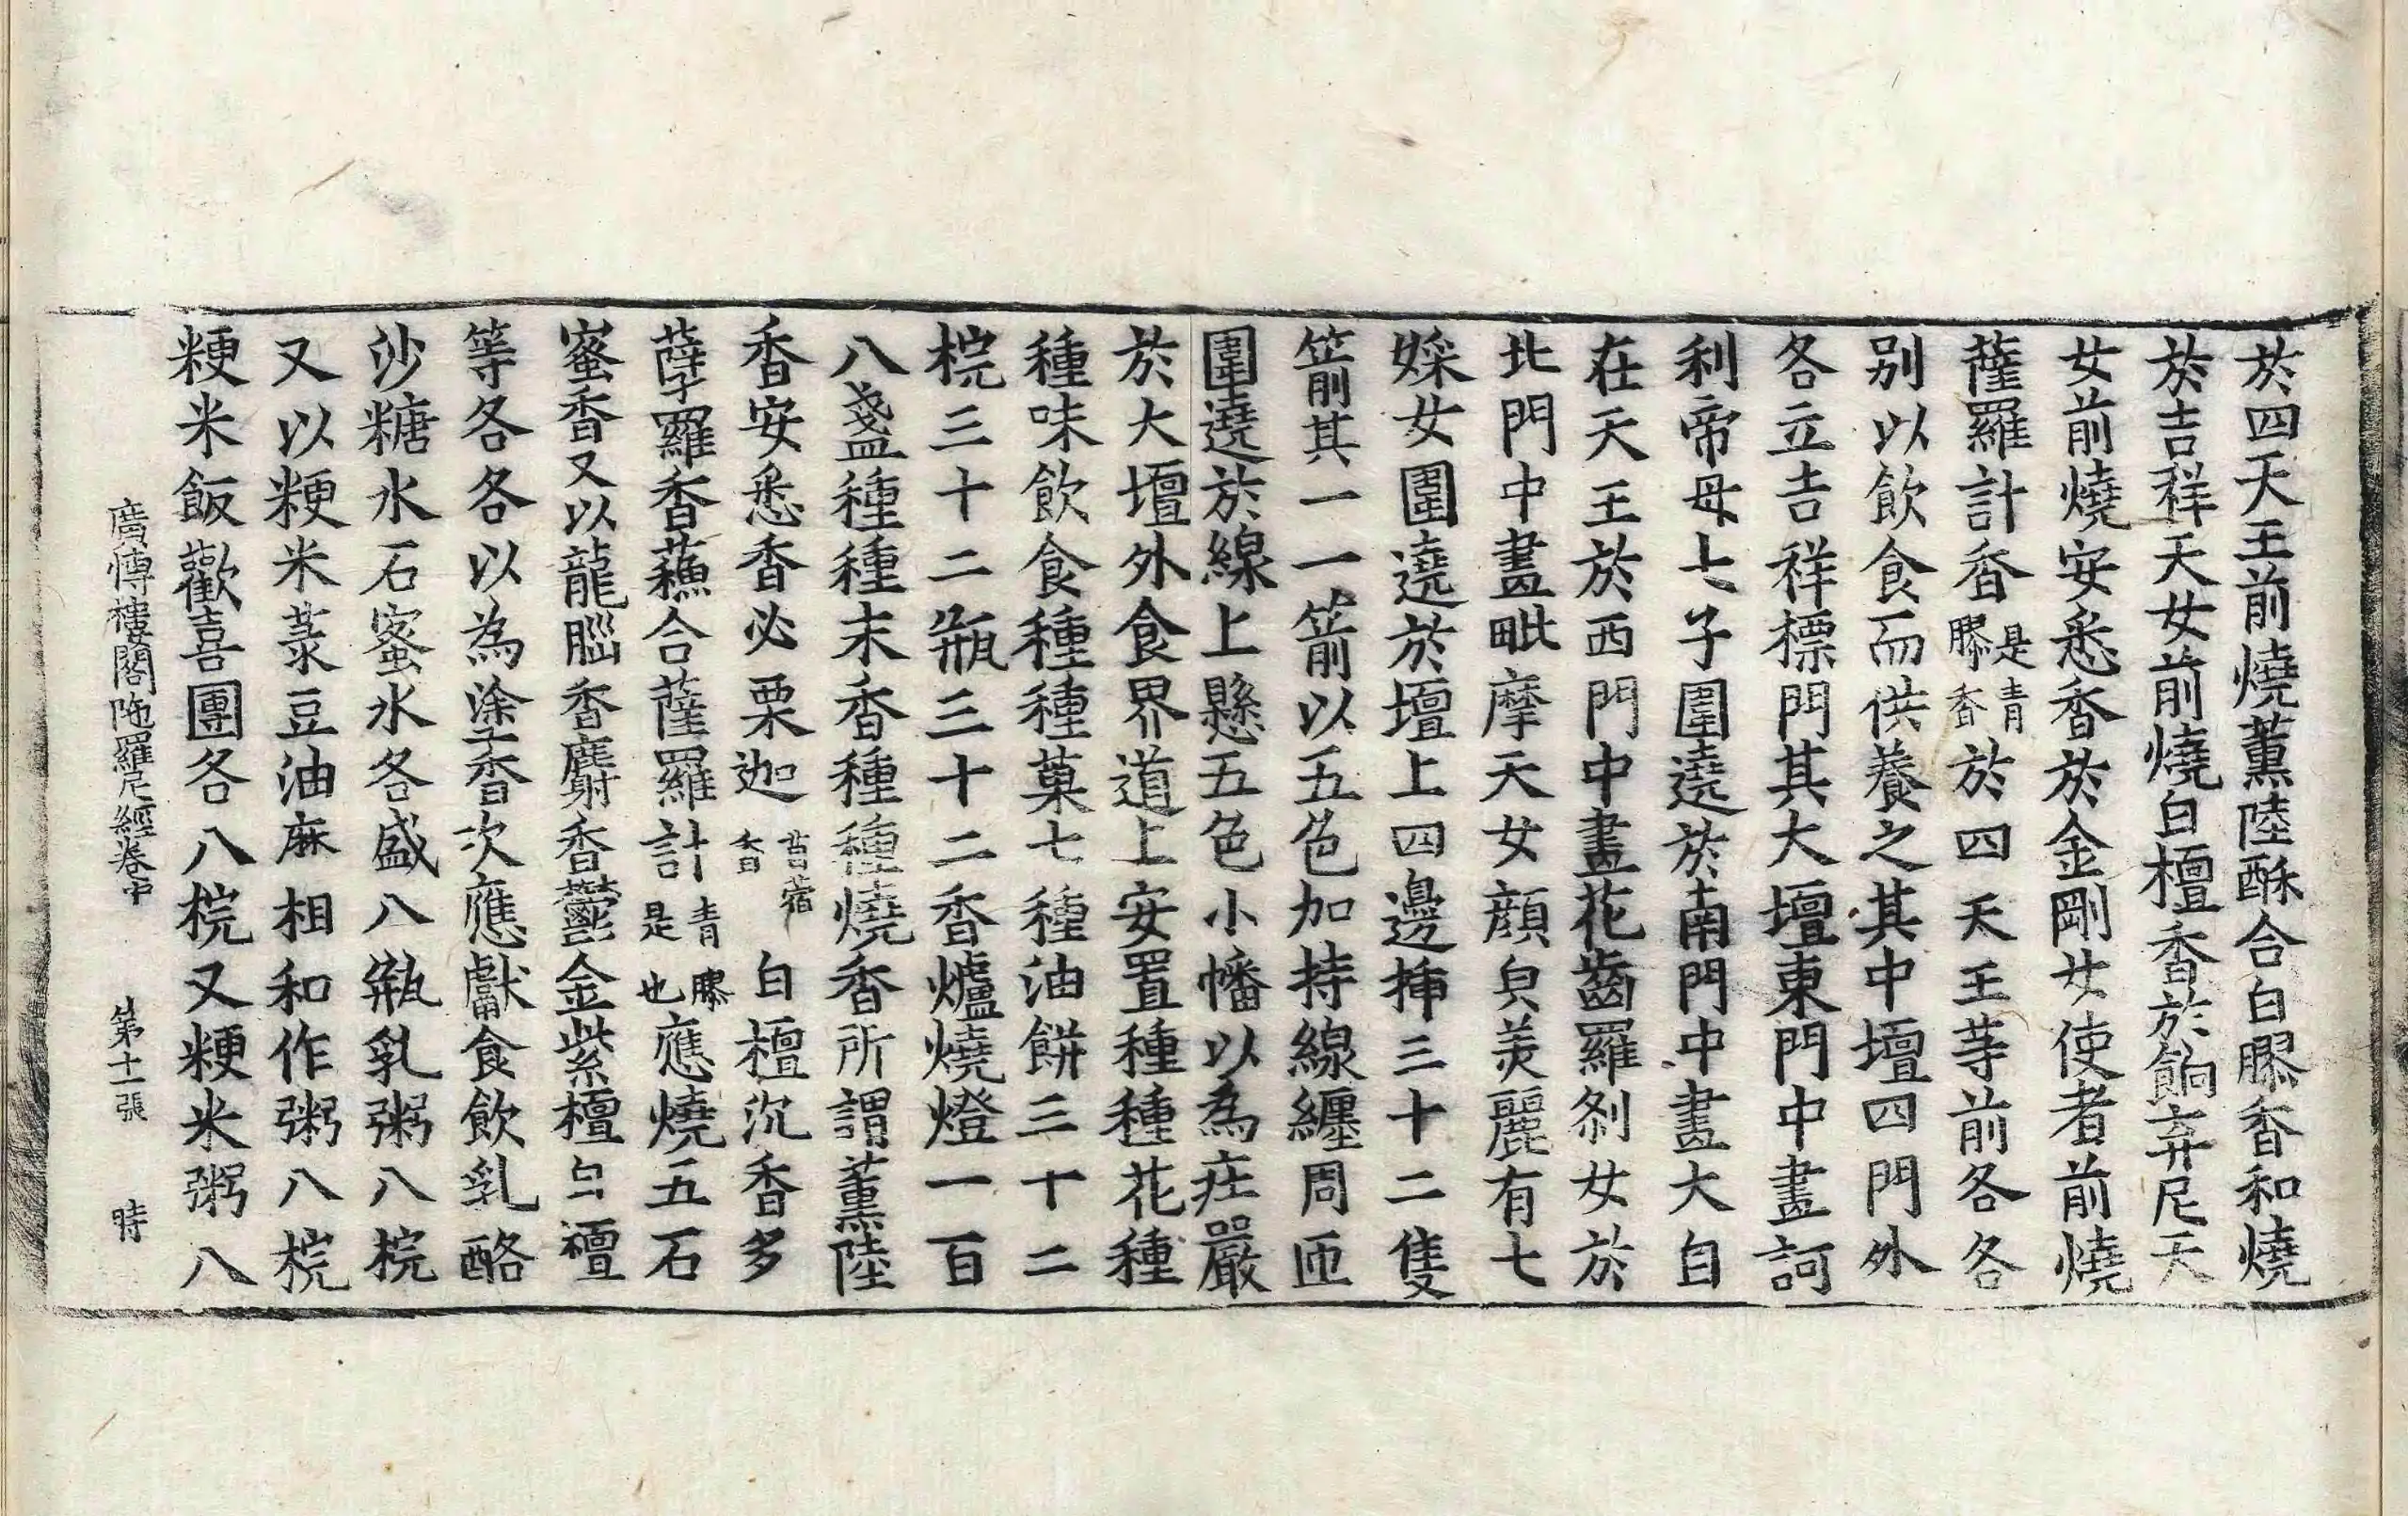 於四天王前燒薰陸酥合白膠香和燒
於吉祥天女前燒白檀香於餉弃尼天
女前燒安悉香於金剛女使者前燒
薩羅計香是青膠香於四天王等前各各
别以飲食而供養之其中壇四門外
各立吉祥標門其大壇東門中畫訶
利帝母七子圍遶於南門中畫大自
在天王於西門中畫花齒羅剎女於
北門中畫毗摩天女顔皃美麗有七
婇女圍遶於壇上四邊揷三十二隻
箭其一一箭以五色加持線纏周匝
圍遶於線上懸五色小幡以為莊嚴
於大壇外食界道上安置種種花種
種味飲食種種菓七種油餅三十二
椀三十二瓶三十二香爐燒燈一百
八盞種種末香種種燒香所謂薰陸
香安悉香必栗迦苜蓿香白檀沉香多
孽羅香蘓合薩羅計青膠是也應燒五石
蜜香又以龍腦香麝香鬱金紫檀白檀
等各各以為塗香次應獻食飲乳酪
沙糖水石蜜水各盛八瓶乳粥八椀
又以粳米菉豆油麻相和作粥八椀
粳米飯歡喜團各八椀又粳米粥八
廣愽樓閣陁羅尼經卷中 第十一張 時